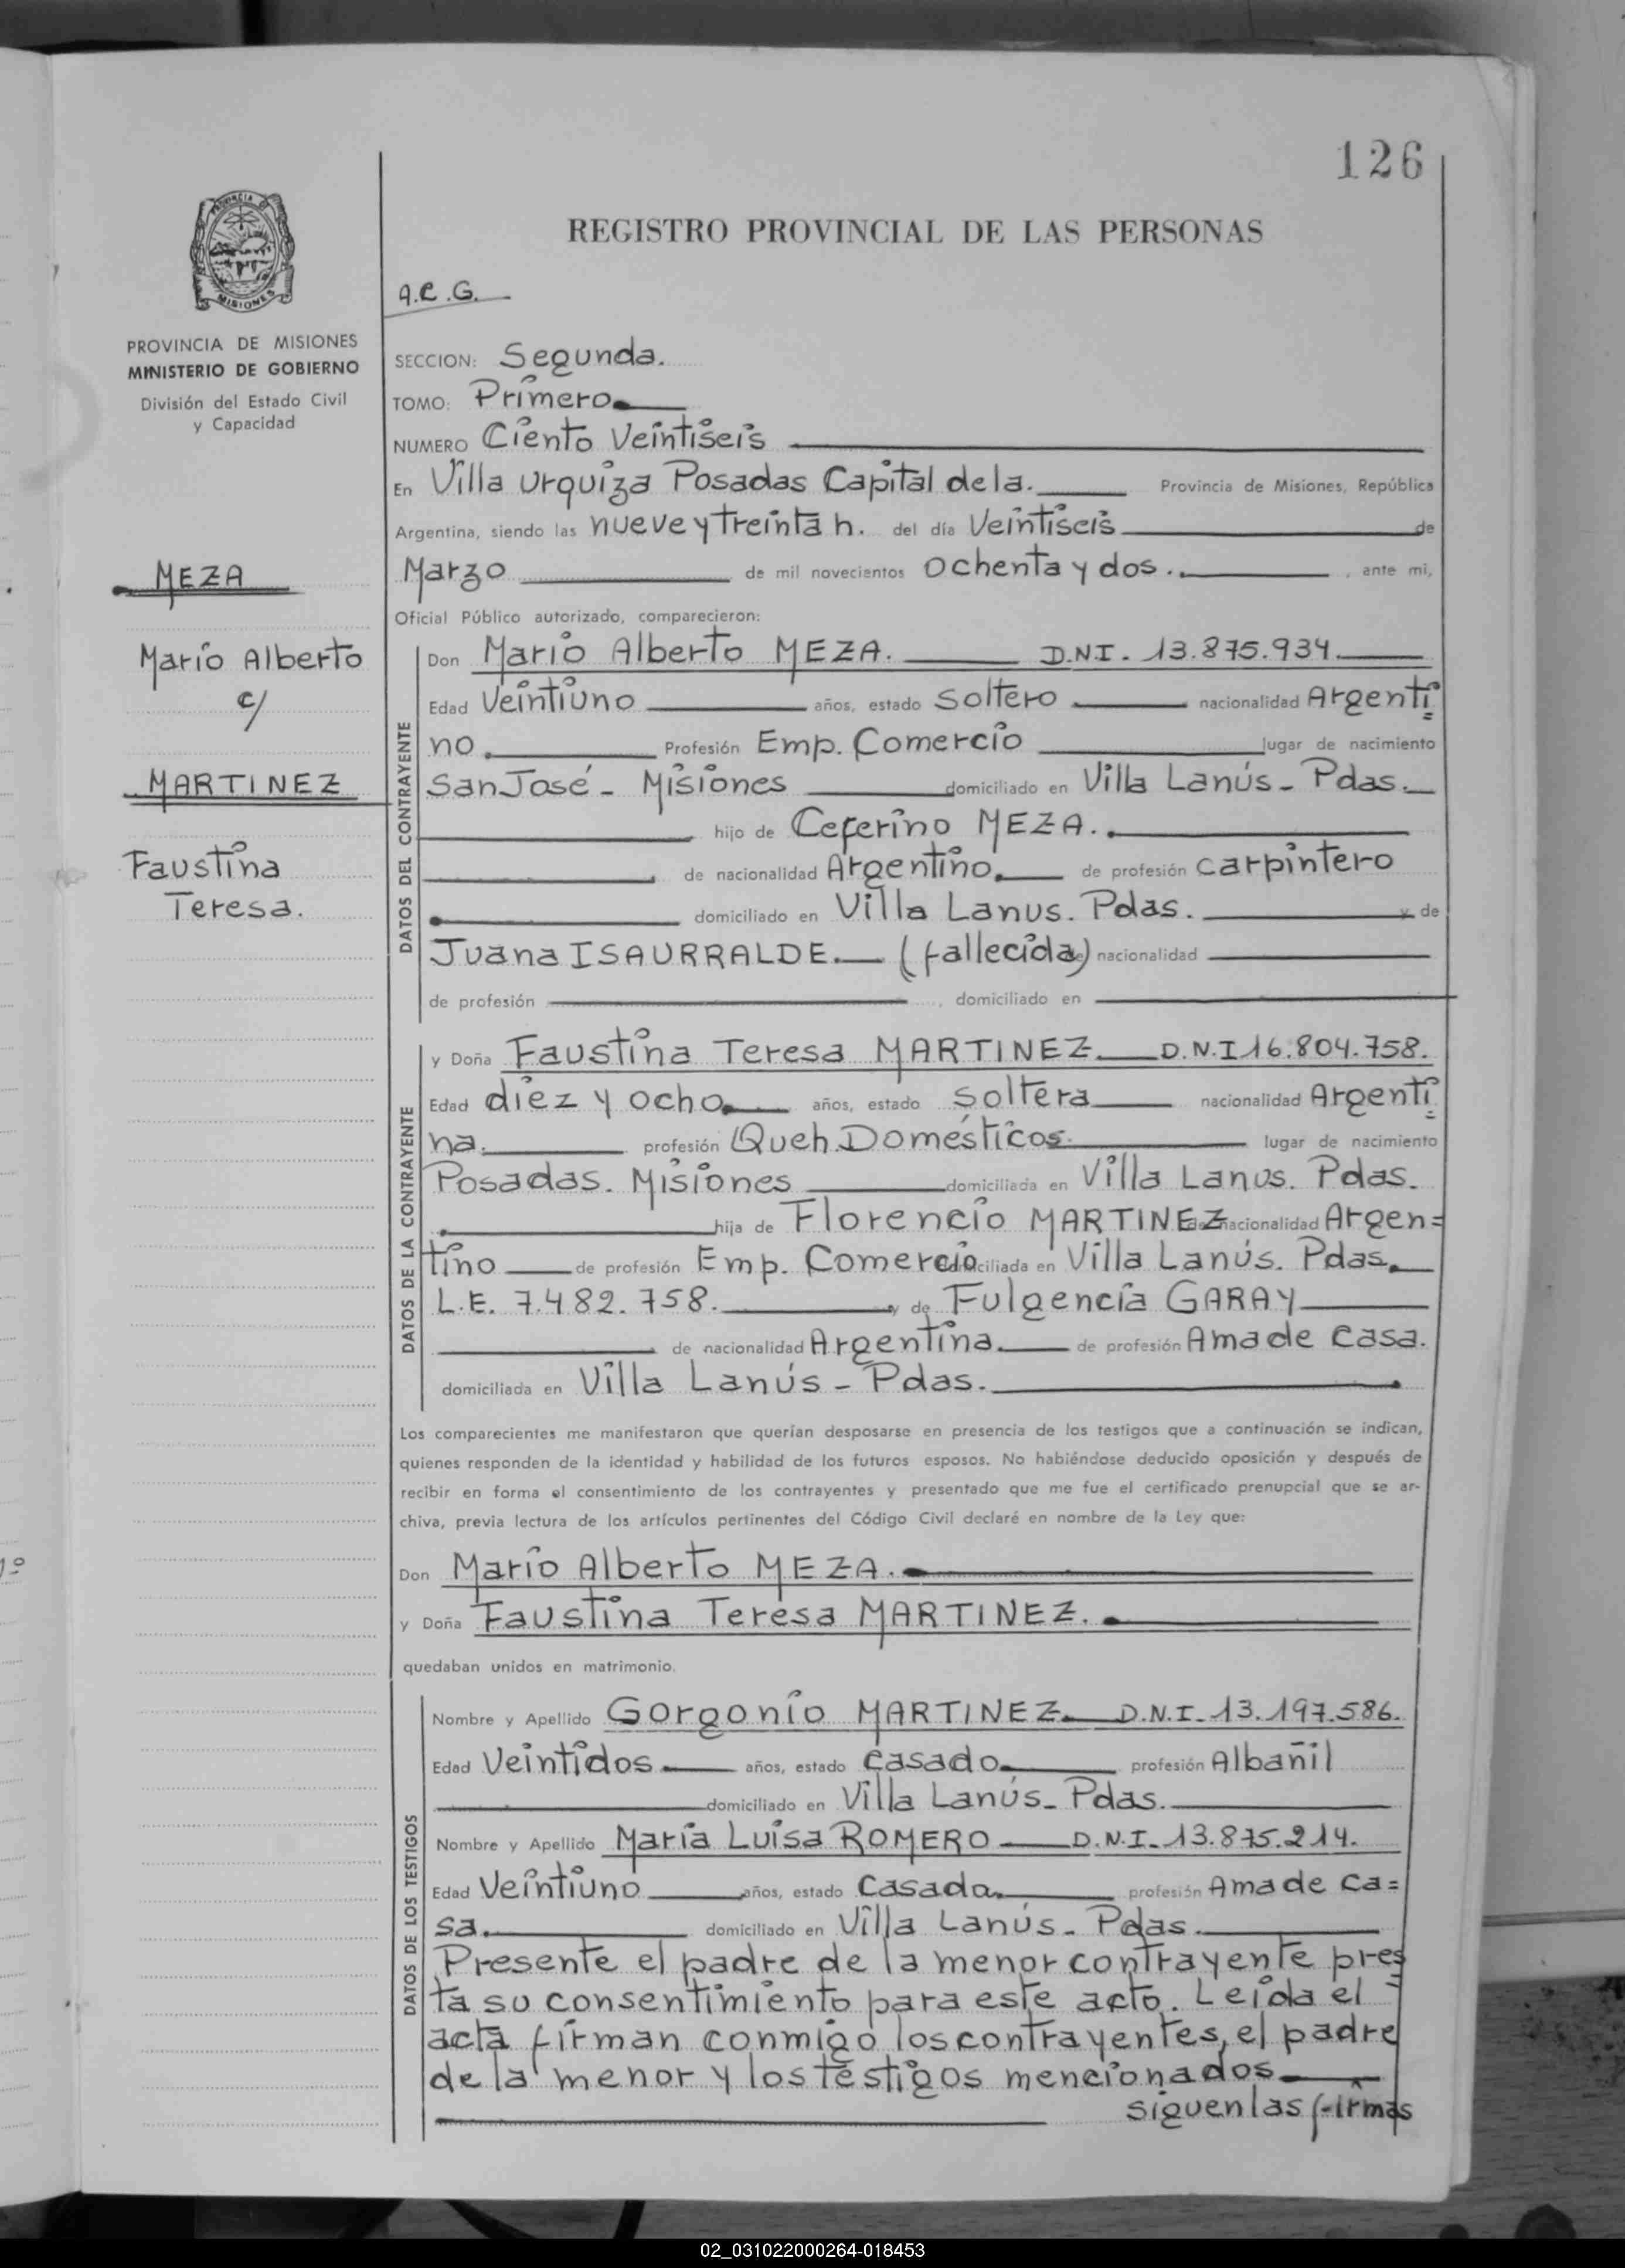 126
PROVINCIA DE
MISIONES
REGISTRO PROVINCIAL DE LAS PERSONAS
PROVINCIA DE MISIONES
MINISTERIO DE GOBIERNO
División del Estado Civil
y Capacidad
MEZA
Mario Alberto
c/
MARTINEZ
Faustina
Teresa.
A.C.G.
SECCION: Segunda.
TOMO: Primero
NUMERO Ciento Veintiseis
En Villa Urquiza Posadas Capital de la. Provincia de Misiones, República
Argentina, siendo las nueve y treinta h. del día Veintiseis de
Marzo de mil novecientos Ochenta y dos. , ante mi,
Oficial Público autorizado, comparecieron:
DATOS DEL CONTRAYENTE
Don Mario Alberto MEZA. D.N.I. 13.875.934.
Edad Veintiuno años, estado Soltero nacionalidad Argenti=
no. Profesión Emp. Comercio lugar de nacimiento
San José - Misiones domiciliado en Villa Lanús - Pdas.
hijo de Ceferino MEZA.
de nacionalidad Argentino. de profesión Carpintero
domiciliado en Villa Lanus. Pdas. y de
Juana ISAURRALDE. (fallecida) nacionalidad
de profesión , domiciliado en
DATOS DE LA CONTRAYENTE
y Doña Faustina Teresa MARTINEZ. D.N.I 16.804.758.
Edad diez y ocho años, estado Soltera nacionalidad Argenti=
na. profesión Queh. Domésticos. lugar de nacimiento
Posadas. Misiones domiciliada en Villa Lanus. Pdas.
hija de Florencio MARTINEZ de nacionalidad Argen=
tino de profesión Emp. Comercio domiciliada en Villa Lanús. Pdas.
L.E. 7.482.758. y de Fulgencia GARAY
de nacionalidad Argentina. de profesión Ama de Casa.
domiciliada en Villa Lanús - Pdas.
Los comparecientes me manifestaron que querían desposarse en presencia de los testigos que a continuación se indican,
quienes responden de la identidad y habilidad de los futuros esposos. No habiéndose deducido oposición y después de
recibir en forma el consentimiento de los contrayentes y presentado que me fue el certificado prenupcial que se ar-
chiva, previa lectura de los artículos pertinentes del Código Civil declaré en nombre de la Ley que:
Don Mario Alberto MEZA.
y Doña Faustina Teresa MARTINEZ.
quedaban unidos en matrimonio.
DATOS DE LOS TESTIGOS
Nombre y Apellido Gorgonio MARTINEZ. D.N.I. 13.197.586.
Edad Veintidos años, estado Casado profesión Albañil
domiciliado en Villa Lanús - Pdas.
Nombre y Apellido María Luisa ROMERO D.N.I. 13.875.214.
Edad Veintiuno años, estado Casada profesión Ama de Ca=
sa. domiciliado en Villa Lanús - Pdas.
Presente el padre de la menor contrayente pres=
ta su consentimiento para este acto. Leida el
acta firman conmigo los contrayentes, el padre
de la menor y los testigos mencionados
siguen las firmas
02_031022000264-018453